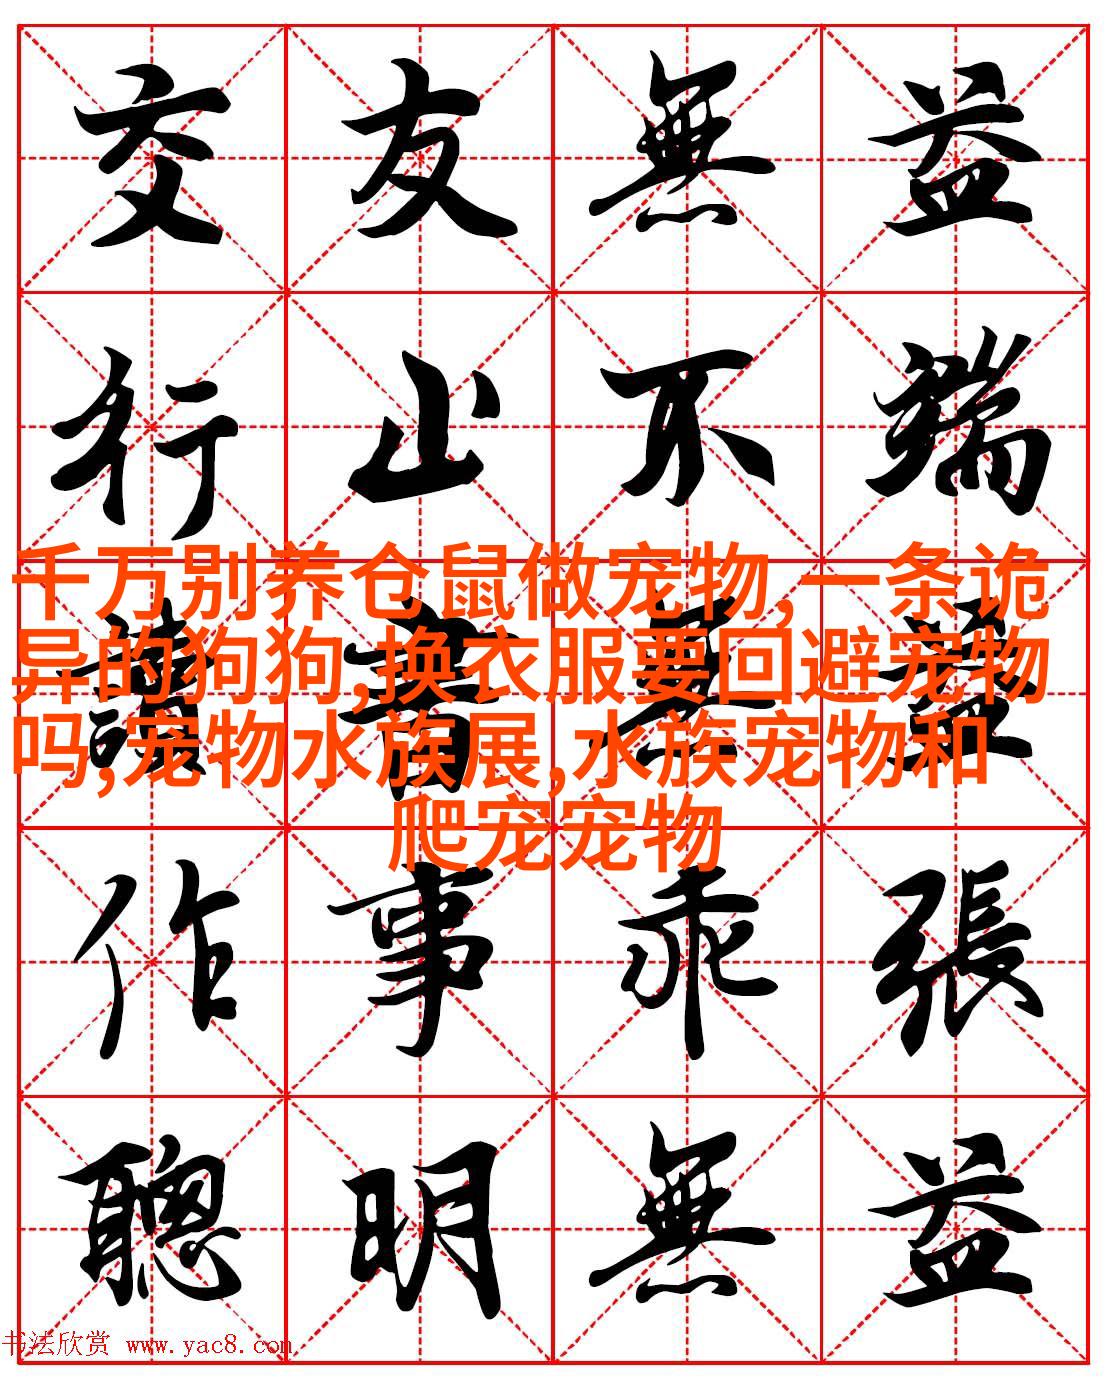 交友無益
行止不端
千万别养仓鼠做宠物,一条诡
异的狗狗,换衣服要回避宠物
吗,宠物水族展,水族宠物和
爬宠宠物
讀書無益
作事乖張
聰明無益
书法欣赏 www.yac8.com